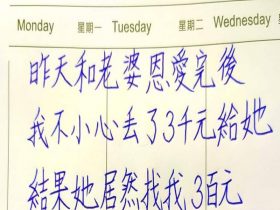 Monday 星期一 Tuesday 星期二 Wednesday
昨天和老婆恩愛完後
我不小心丟了3千元給她
結果她居然找我3百元